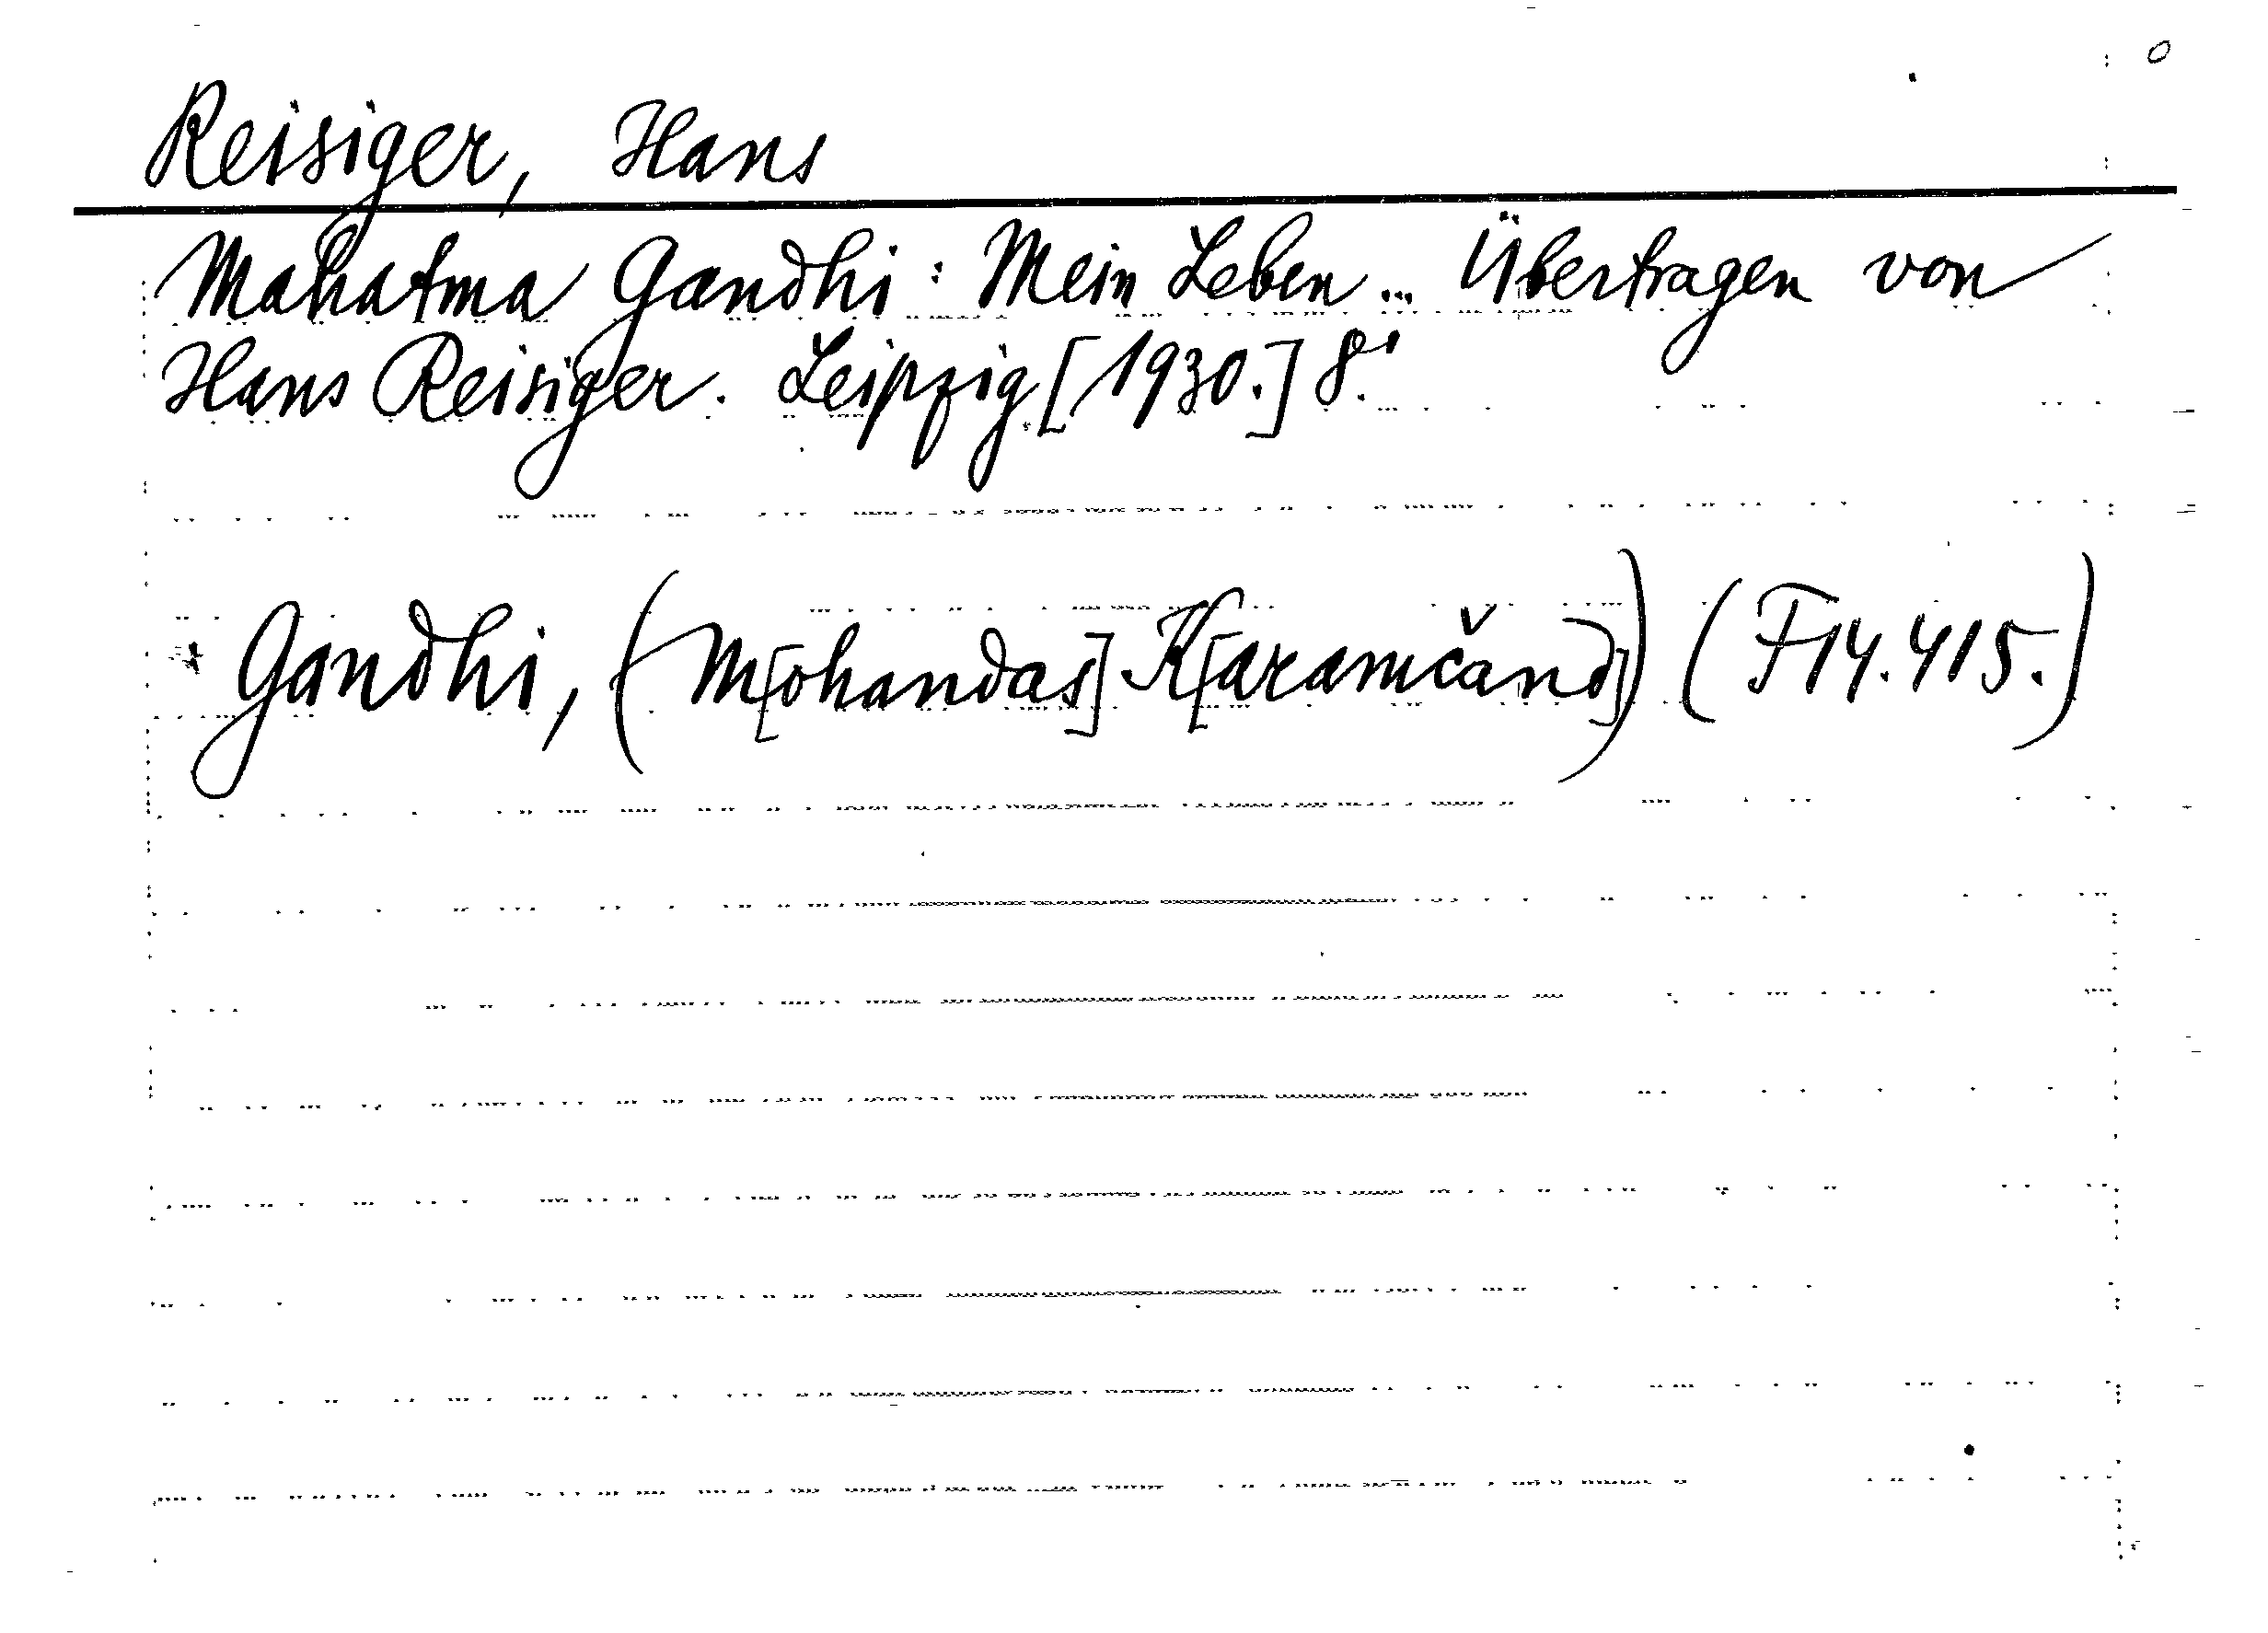 Reisiger, Hans
Mahatma Gandhi: Mein Leben... Übertragen von
Hans Reisiger. Leipzig [1930.] 8.'
* Gandhi, (M[ohandas] K[aramčand]) (F14.415.)